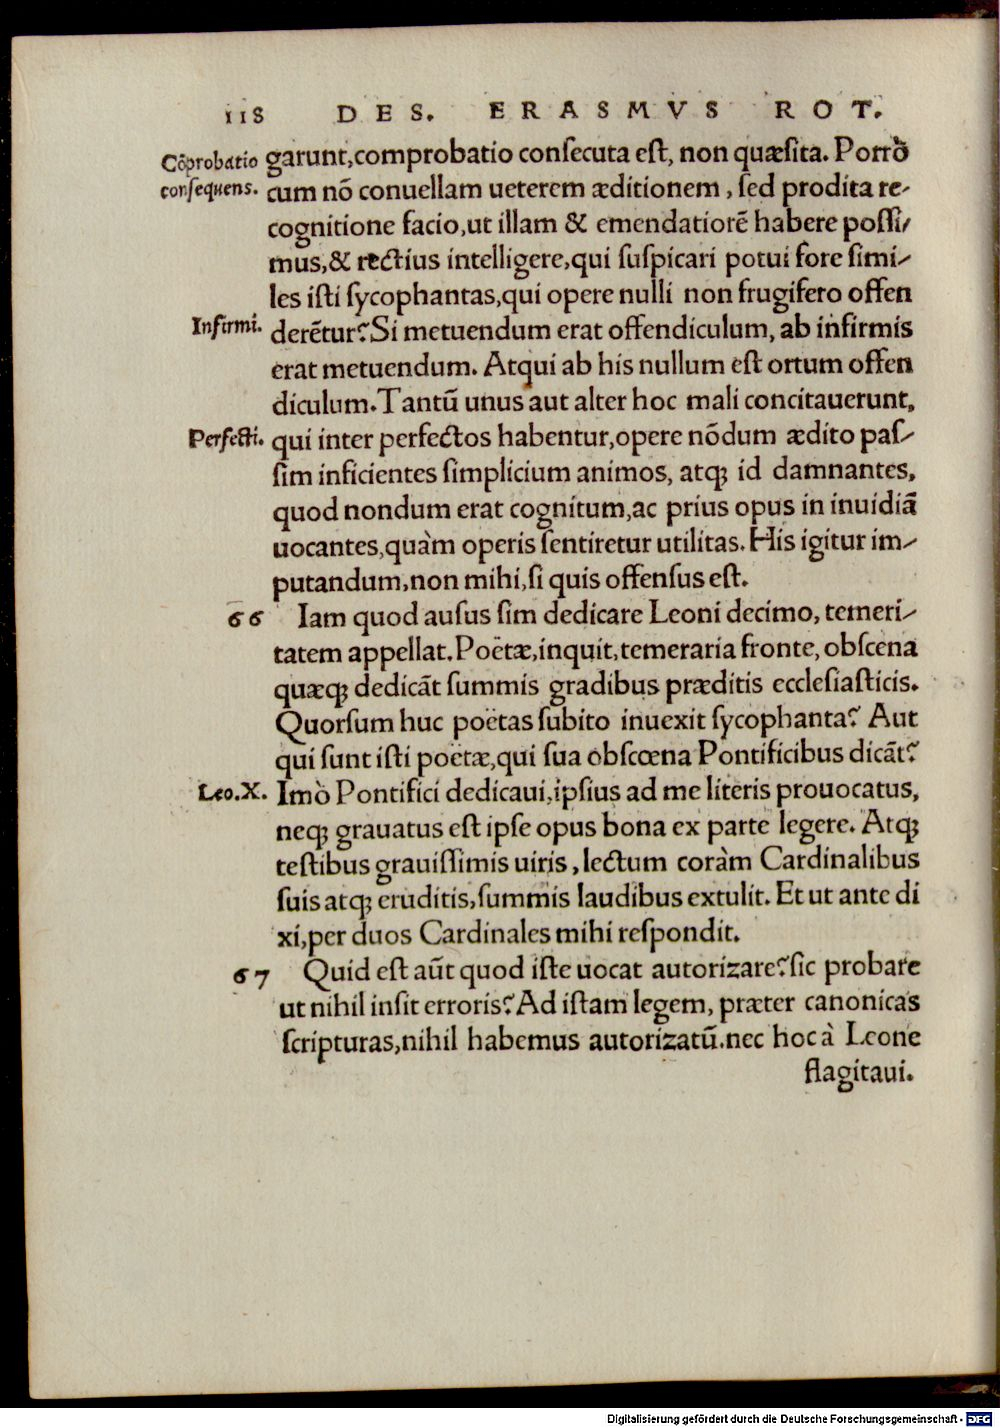 118 DES. ERASMVS ROT.
Cõprobatio
consequens.
garunt, comprobatio consecuta est, non quæsita. Porrò
cum nõ conuellam ueterem æditionem, sed prodita re-
cognitione facio, ut illam & emendatiorẽ habere possi-
mus, & rectius intelligere, qui suspicari potui fore simi-
les isti sycophantas, qui opere nulli non frugifero offen
Infirmi.
derẽtur? Si metuendum erat offendiculum, ab infirmis
erat metuendum. Atqui ab his nullum est ortum offen
diculum. Tantũ unus aut alter hoc mali concitauerunt,
Perfecti.
qui inter perfectos habentur, opere nõdum ædito pas-
sim inficientes simplicium animos, atq; id damnantes,
quod nondum erat cognitum, ac prius opus in inuidiã
uocantes, quàm operis sentiretur utilitas. His igitur im-
putandum, non mihi, si quis offensus est.
66 Iam quod ausus sim dedicare Leoni decimo, temeri-
tatem appellat. Poëtæ, inquit, temeraria fronte, obscena
quæq; dedicãt summis gradibus præditis ecclesiasticis.
Quorsum huc poëtas subito inuexit sycophanta? Aut
qui sunt isti poëtæ, qui sua obscœna Pontificibus dicãt?
Leo. X.
Imò Pontifici dedicaui, ipsius ad me literis prouocatus,
neq; grauatus est ipse opus bona ex parte legere. Atq;
testibus grauissimis uiris, lectum coràm Cardinalibus
suis atq; eruditis, summis laudibus extulit. Et ut ante di
xi, per duos Cardinales mihi respondit.
67 Quid est aũt quod iste uocat autorizare? sic probare
ut nihil insit erroris? Ad istam legem, præter canonicas
scripturas, nihil habemus autorizatũ. nec hoc à Leone
flagitaui.
Digitalisierung gefördert durch die Deutsche Forschungsgemeinschaft - DFG